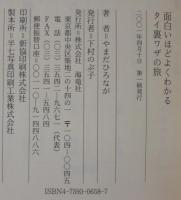 面白いほどよくわかる
タイ裏ワザの旅
二〇〇一年四月十日　第一刷発行
著　者＝やまだひろなが
発行者＝下村のぶ子
発行所＝株式会社　海竜社
東京都中央区築地二の十一の二十六　〒一〇四－〇〇四五
電　話（〇三）三五四二－九六七一（代表）
FAX（〇三）三五四一－五四八四
郵便振替口座＝〇〇一一〇－九－四四八八六
印刷所＝新協印刷株式会社
製本所＝半七写真印刷工業株式会社
ISBN4-7593-0658-7